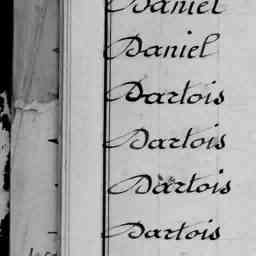 Daniel
Daniel
Dartois
Dartois
Dartois
Dartois